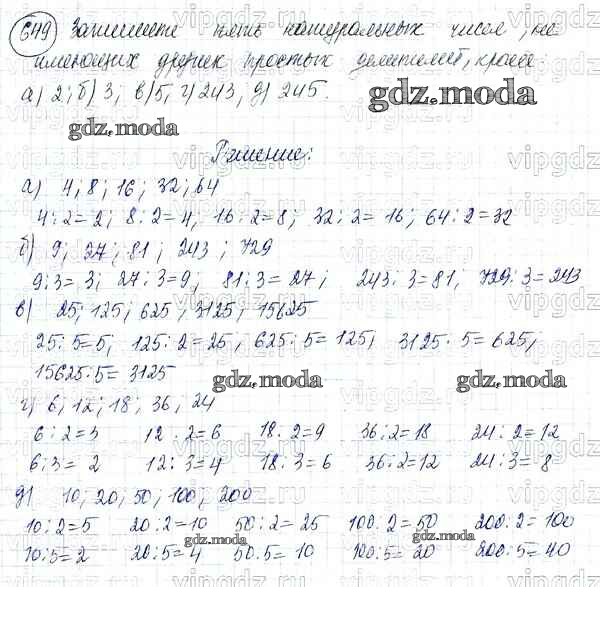 649 Запишите пять натуральных чисел, не
имеющих других простых делителей, кроме:
а) 2; б) 3; в) 5, г) 243, д) 245.
gdz.moda
gdz.moda
Решение:
а) 4; 8; 16; 32; 64
4:2=2; 8:2=4, 16:2=8; 32:2=16; 64:2=32
gdz.moda
б) 9; 27; 81; 243; 729
9:3=3; 27:3=9; 81:3=27; 243:3=81, 729:3=243
в) 25; 125; 625; 3125; 15625
25:5=5; 125:2=25, 625:5=125; 3125:5=625;
15625:5=3125
gdz.moda gdz.moda
г) 6; 12; 18; 36; 24
6:2=3 12:2=6 18:2=9 36:2=18 24:2=12
6:3=2 12:3=4 18:3=6 36:2=12 24:3=8
д) 10; 20; 50; 100; 200
10:2=5 20:2=10 50:2=25 100:2=50 200:2=100
10:5=2 20:5=4 50:5=10 100:5=20 200:5=40
gdz.moda gdz.moda